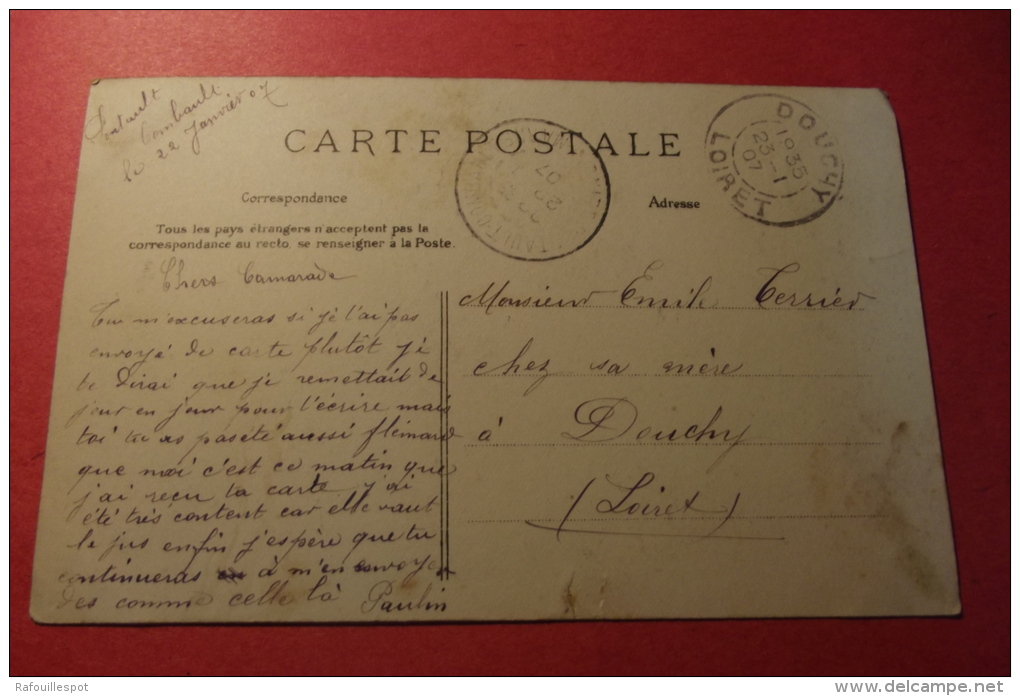 Pontault
Combault
le 22 Janvier 07
CARTE POSTALE
DOUCHY
1935
23-1
07
LOIRET
Correspondance
Adresse
Tous les pays étrangers n'acceptent pas la
correspondance au recto, se renseigner à la Poste.
Chers Camarade
Tu m'excuseras si je t'ai pas
envoyé de carte plutôt je
te dirai que je remettait de
jour en jour pour t'écrire mais
toi tu as pas été aussi flémard
que moi c'est ce matin que
j'ai reçu ta carte j'ai
été très content car elle vaut
le jus enfin j'espère que tu
continueras à m'en envoyer
des comme celle là Paulin
Monsieur Emile Terrier
chez sa mère
à Douchy
(Loiret)
Rafouillespot
delcampe.net